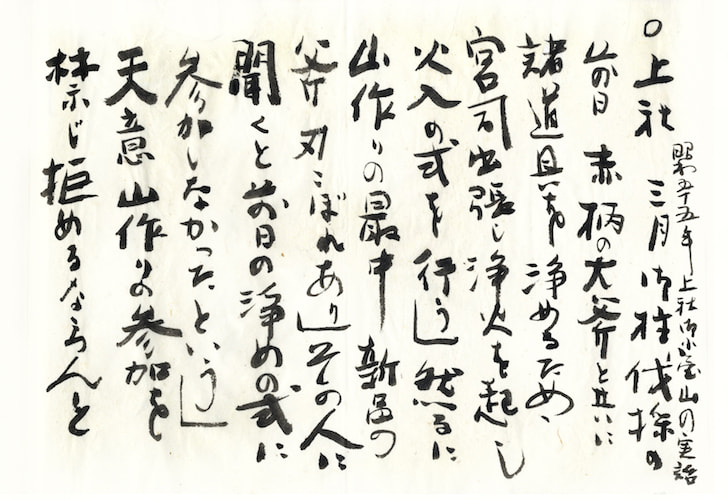 ○上社 三月 御柱伐採の
昭和五十五年 上社御小宝山の実話
前日 赤柄の大斧と共に
諸道具を浄めるため、
宮司出張し浄火を起し
火入の式を行う」然るに
山作りの最中 新品の
斧は刃こぼれあり」その人に
聞くと前日の浄めの式に
参加しなかったという」
天意山作りの参加を
禁じ拒めるならんと